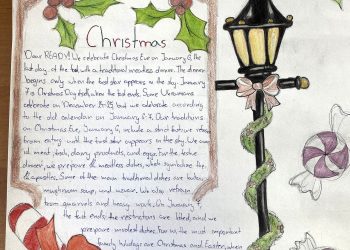 Christmas
Dear READY! We celebrate Christmas Eve on January 6, the
last day of the fast, with a traditional meatless dinner. The dinner
begins only when the first star appears in the sky. January
7 is Christmas Day itself, when the fast ends. Some Ukrainians
celebrate on December 24-25, and we celebrate according
to the old calendar on January 6-7. Our traditions
on Christmas Eve, January 6, include a strict fast: we refrain
from eating until the first star appears in the sky. We can
meat, fish, dairy products, and eggs. For the festive
dinner, we prepare 12 meatless dishes, which symbolize the
12 apostles. Some of the main traditional dishes are kutia,
mushroom soup, and uzvar. We also refrain
from quarrels and heavy work. On January 7,
the fast ends, the restrictions are lifted, and we
prepare meat dishes. For us, the most important
family holidays are Christmas and Easter, when